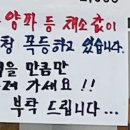 양파 등 채소값이
폭등하고 있습니다.
만큼만
가세요!!
부탁 드립니다...